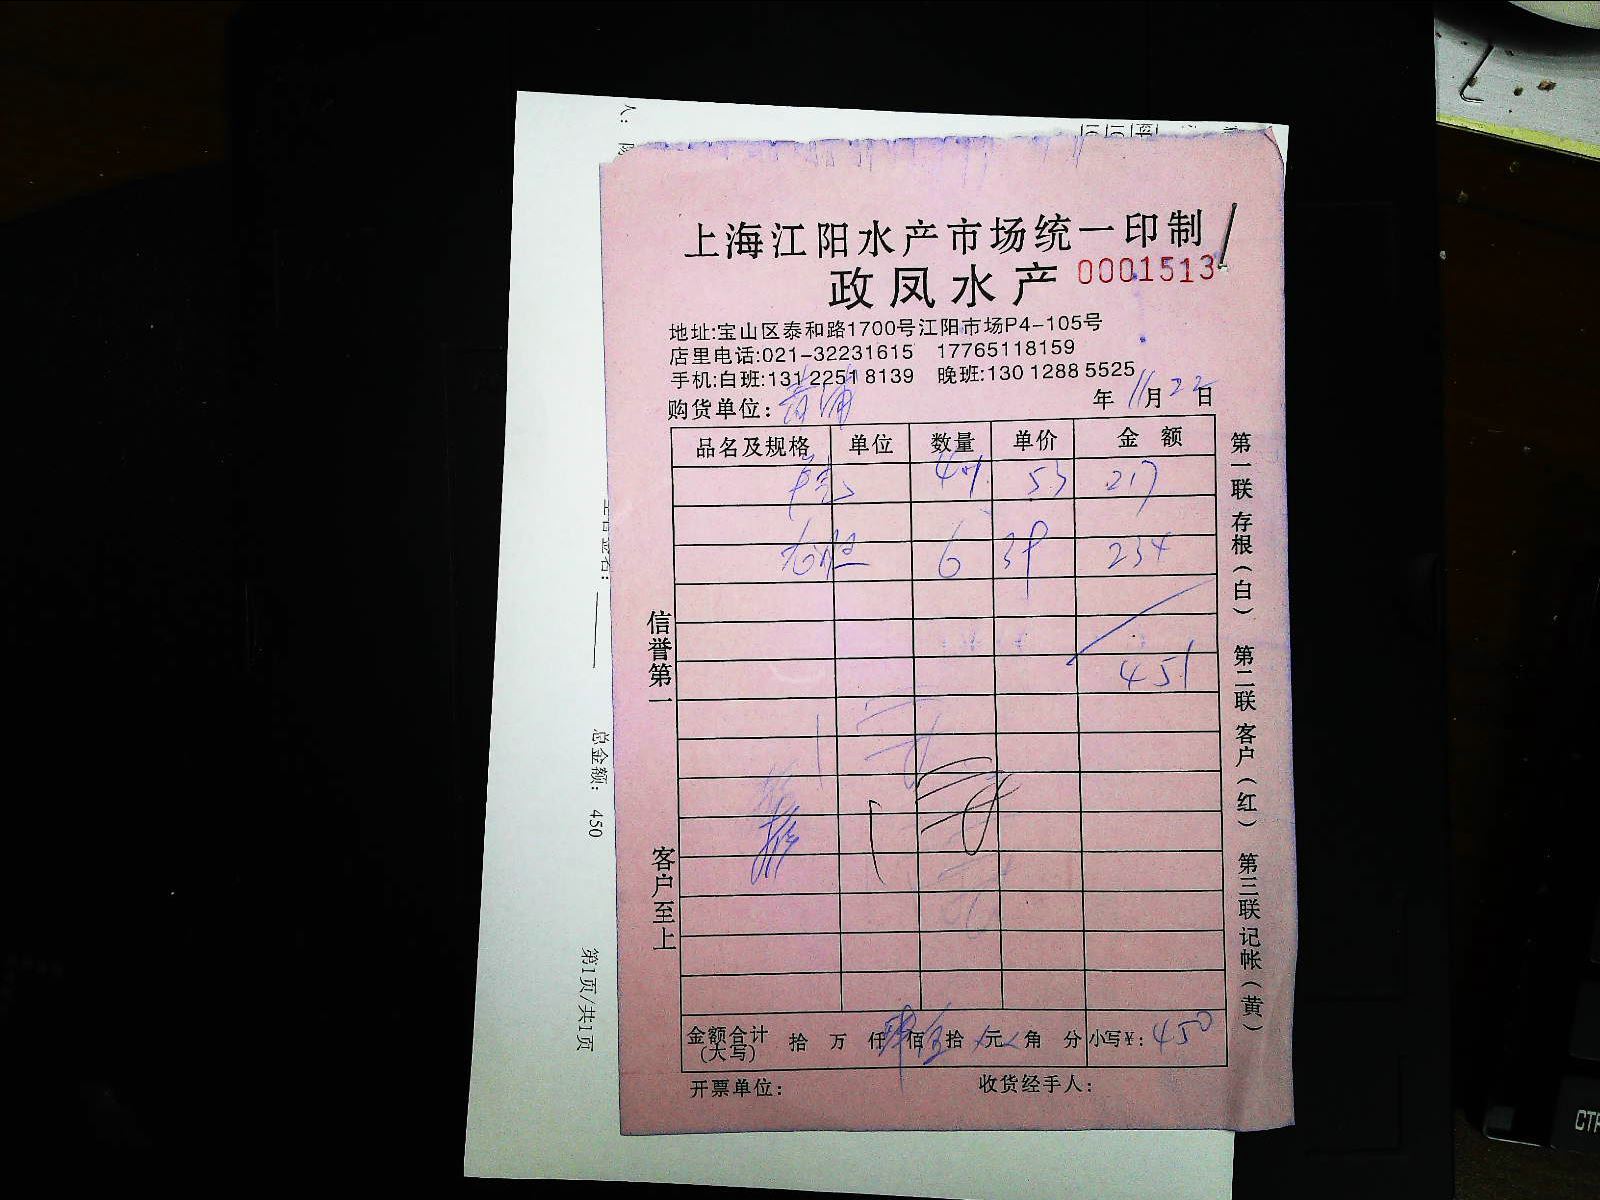 上海江阳水产市场统一印制
政凤水产 0001513
地址:宝山区泰和路1700号江阳市场P4-105号
店里电话:021-32231615 17765118159
手机:白班:131 2251 8139 晚班:130 1288 5525
购货单位: 青浦 年 11 月 22 日
品名及规格 单位 数量 单价 金额
53 217
6 39 234
451
金额合计(大写) 拾 万 仟 肆 佰 伍 拾 元 角 分 小写¥: 450
开票单位: 收货经手人:
信誉第一
客户至上
第一联存根(白) 第二联客户(红) 第三联记帐(黄)
总金额: 450
第1页/共1页
CTR